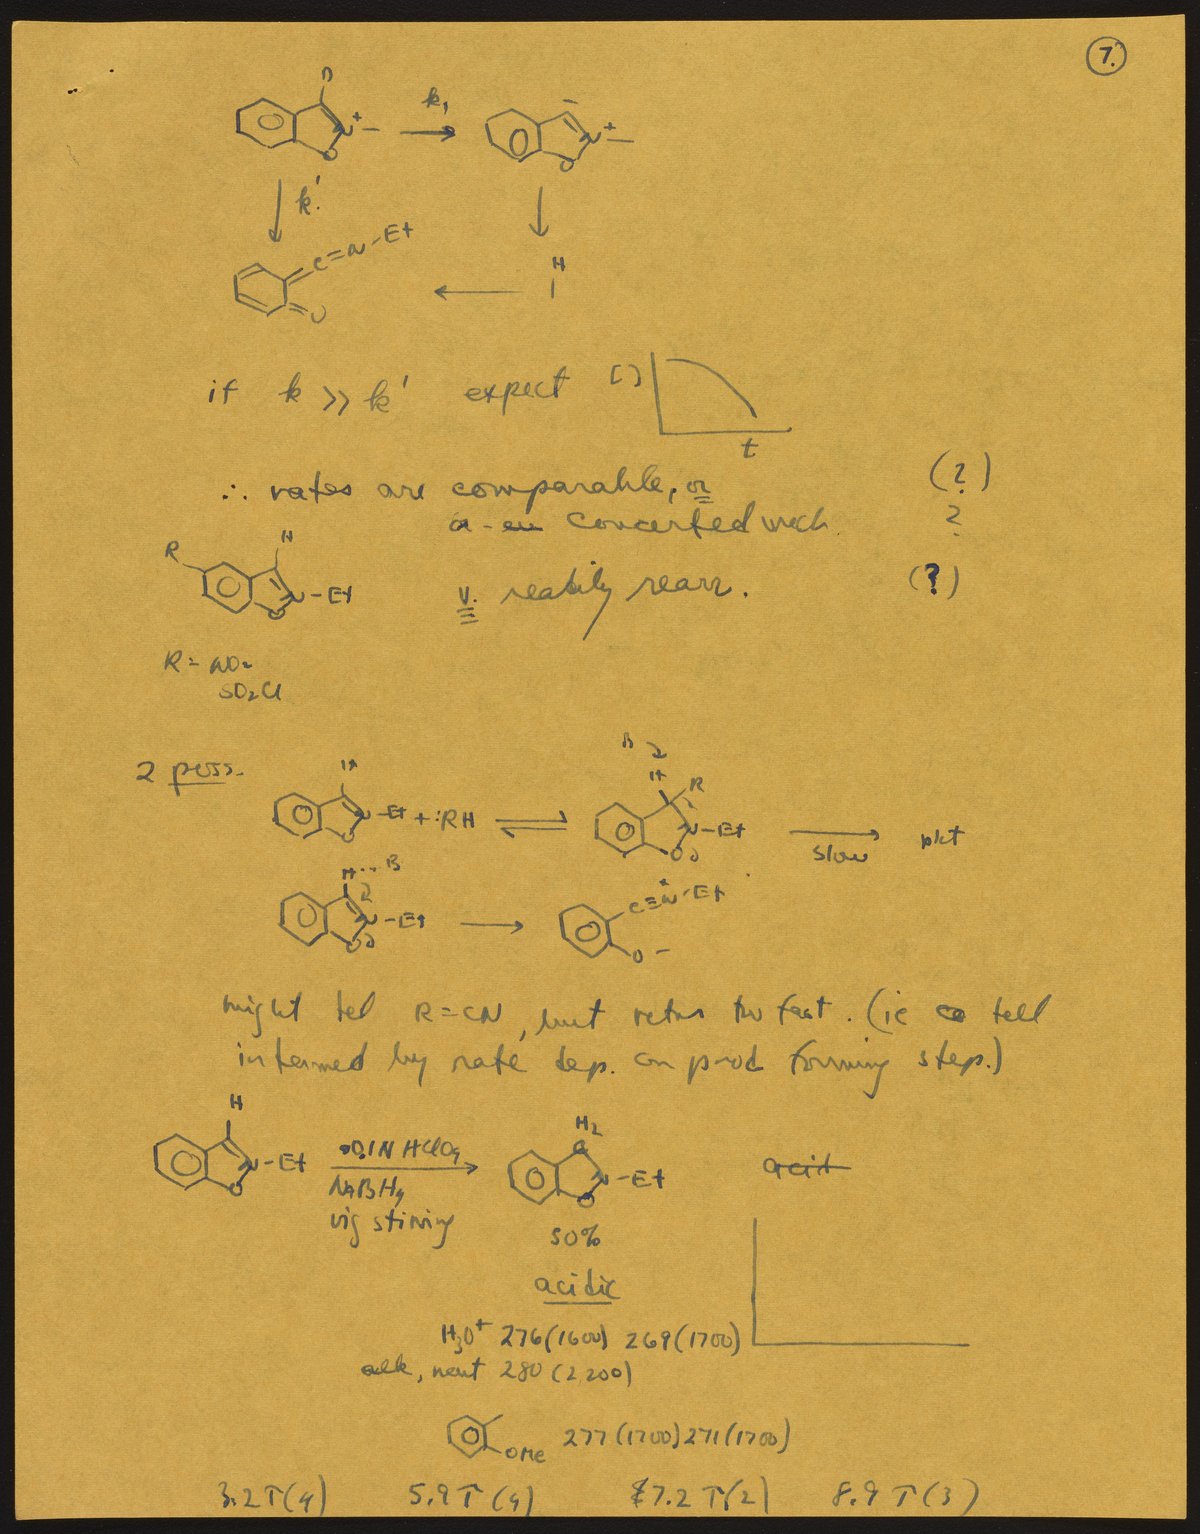 7.
D
k,
N+
O
N+
O
k'.
C=N-Et
O
H
if k >> k' expect [ ]
t
∴ rates are comparable, or (?)
a concerted mech. ?
R H
N-Et
O
v. readily rearr. (?)
R = NO2
SO2Cl
2 poss.
B
H
H R
N-Et + :RH
O
N-Et
O
slow
pdt
H··B
N-Et
O
C≡N+-Et
O-
might tell R=CN, but retro too fast. (ie tell
intermed by rate dep. on prod forming step.)
H
N-Et
O
0.1N HClO4
NaBH4
vig stirring
H2
C
N-Et
O
acid
50%
acidic
H3O+ 276(1600) 269(1700)
alk, neut 280 (2,200)
OMe 277 (1700) 271 (1700)
3.2 τ(4) 5.9 τ (4) 7.2 τ(2) 8.9 τ (3)